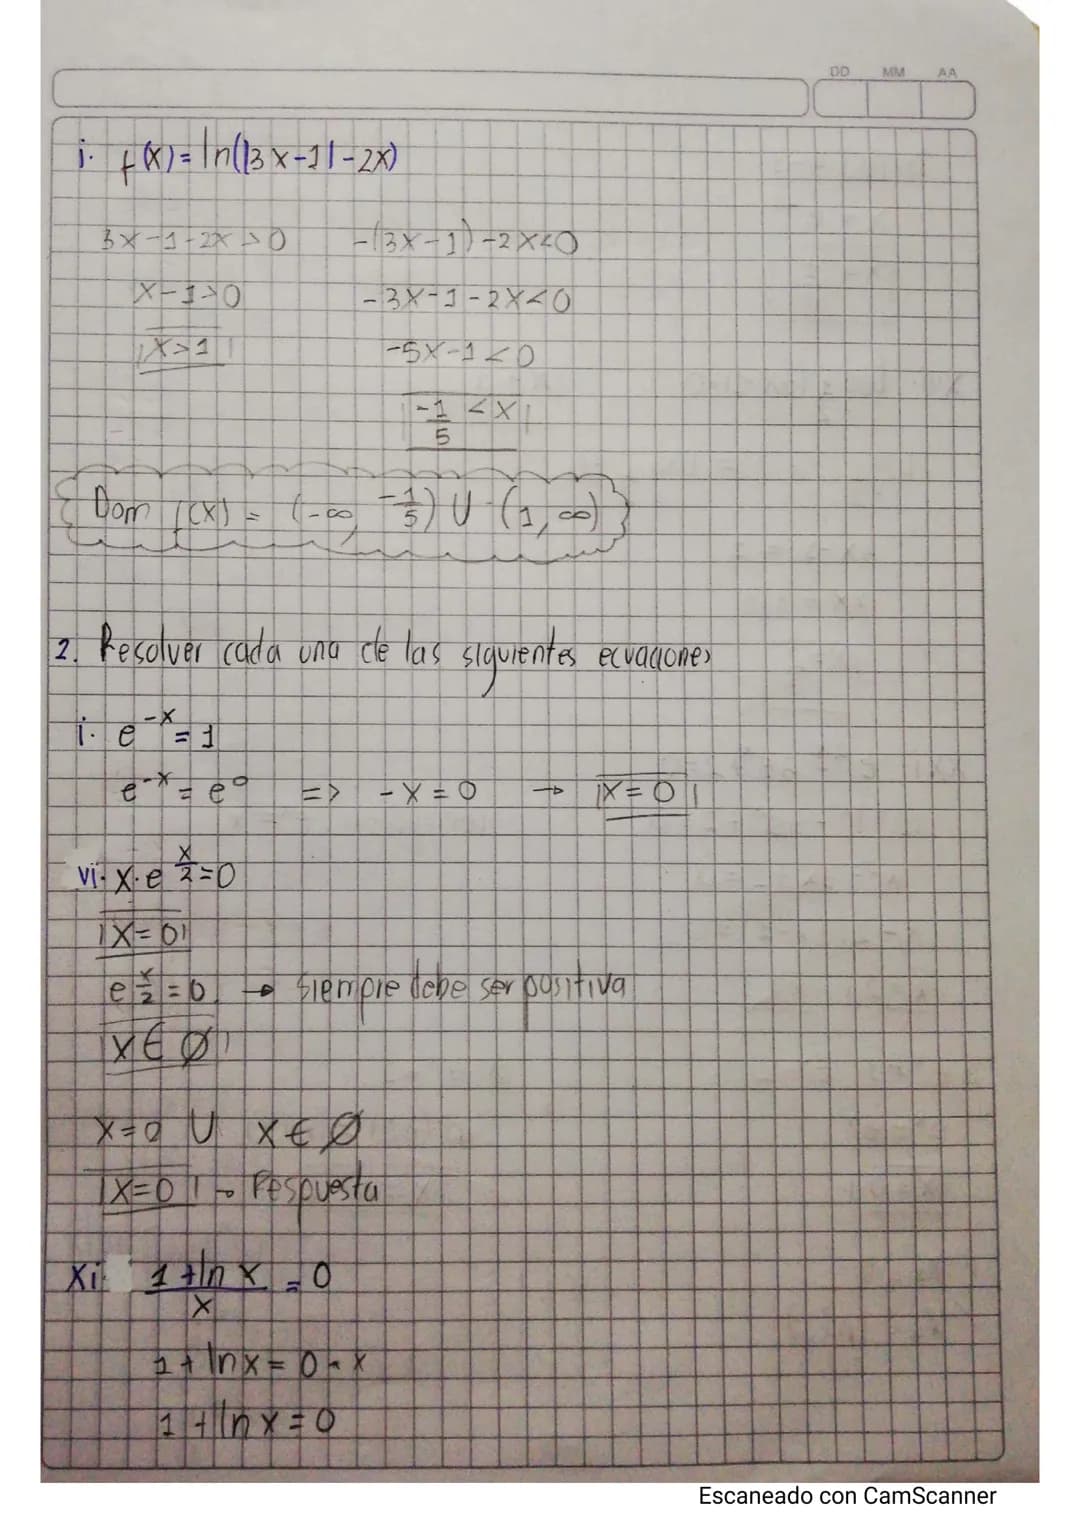 DD MM AA
i. f(x)= ln(|3x-1|-2x)
3x-1-2x>0 -(3x-1)-2x<0
x-1>0 -3x-1-2x<0
|x>1| -5x-1<0
-1/5 < x
Dom f(x) = (-∞, -1/5) U (1, ∞)
2. Resolver cada una de las siguientes ecuaciones
i. e^-x = 1
e^-x = e^0 => -x=0 → |x=0|
vi. x·e^x/2=0
|x=0|
e^x/2=0 → siempre debe ser positiva
x∈∅
x=0 U x∈∅
|x=0| → Respuesta
xi. 1+ln x / x = 0
1+lnx=0·x
1+lnx=0
Escaneado con CamScanner